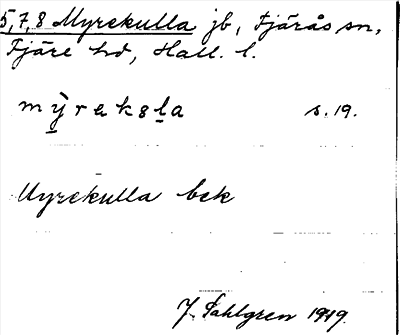 5,7,8 Myrekulla jb, Fjärås sn,
Fjäre hd, Hall. l.
mỳrəkəḷa s. 19.
Myrekulla bck
J. Sahlgren 1919.